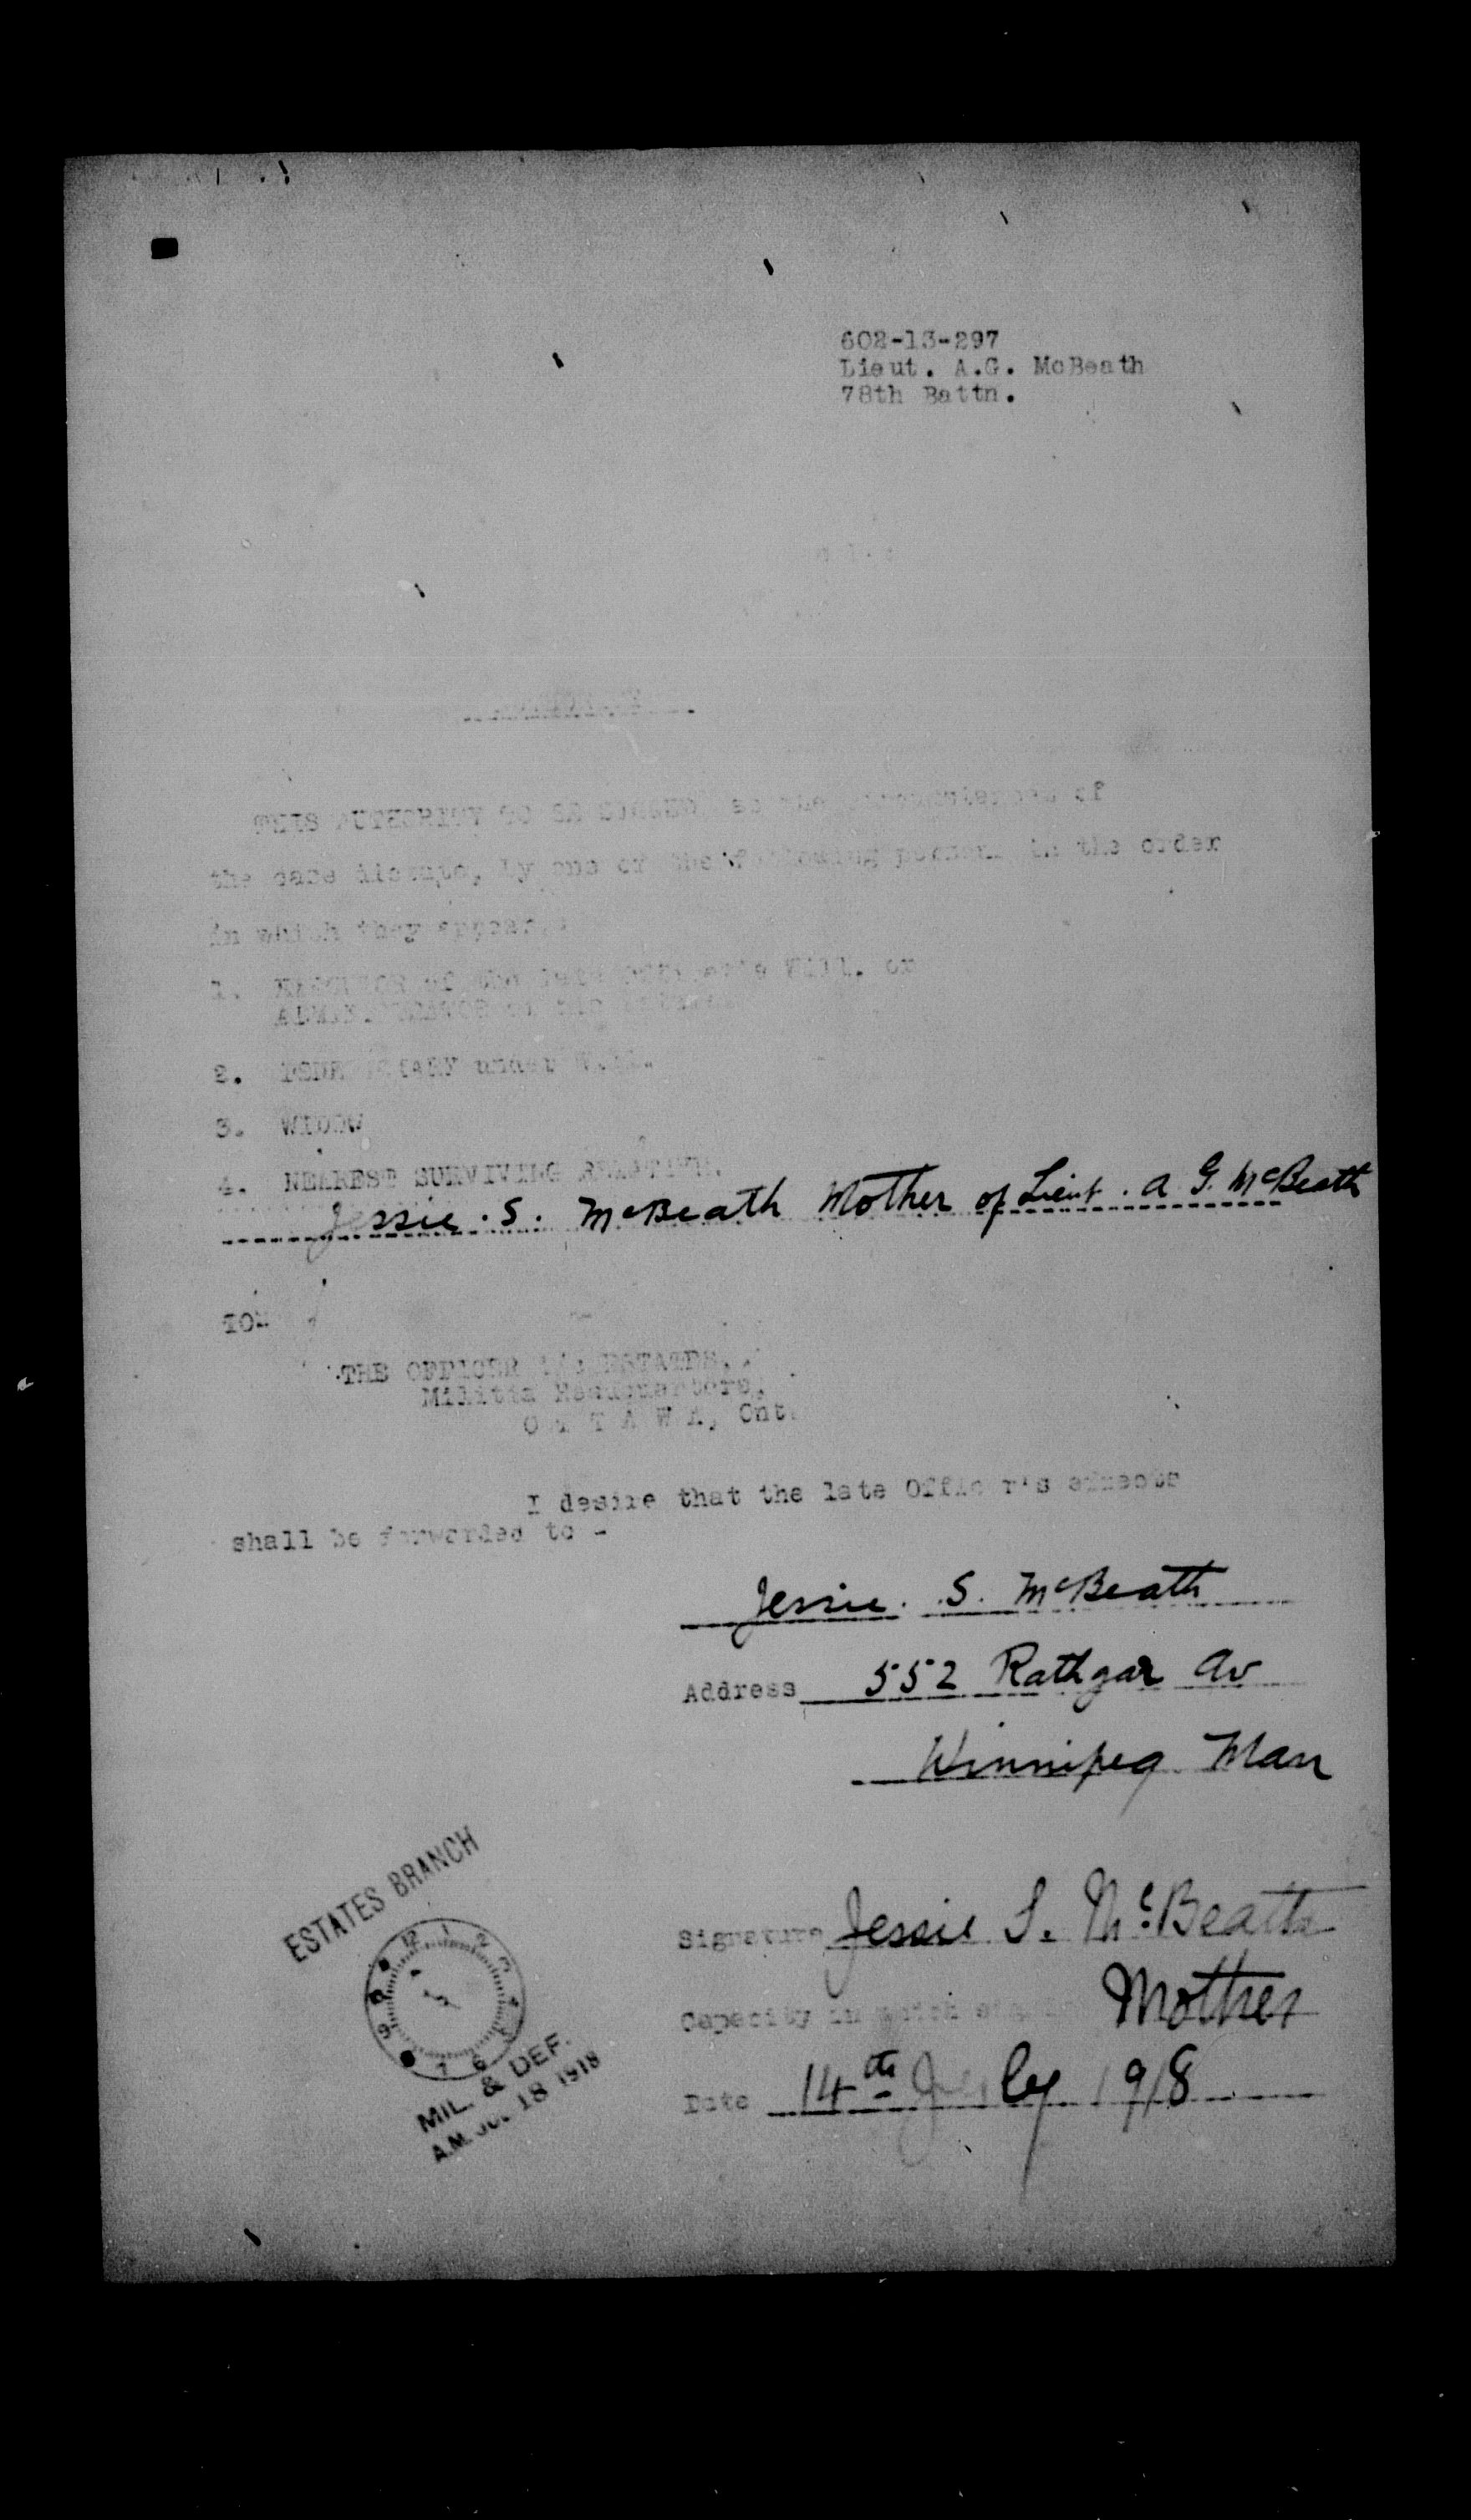 602-13-297
Lieut. A.G. McBeath
78th Battn.
THIS AUTHORITY to of
the case by one of the following in the order
in which they appear
1. EXECUTOR of the late Will. or
ADMINISTRATOR
2. BENEFICIARY under
3. WIDOW
4. NEAREST SURVIVING RELATIVE.
Jessie. S. McBeath Mother of Lieut. A G. McBeath
TO
THE OFFICER ESTATES,
Militia Headquarters,
O T T A W A, Ont.
I desire that the late Officer's effects
shall be forwarded to -
Jessie. S. McBeath
Address 552 Rathgar Av
Winnipeg Man
ESTATES BRANCH
Signature Jessie S. McBeath
Capacity in which Mother
MIL. & DEF.
Date 14th July 1918
A.M. JUL 18 1918